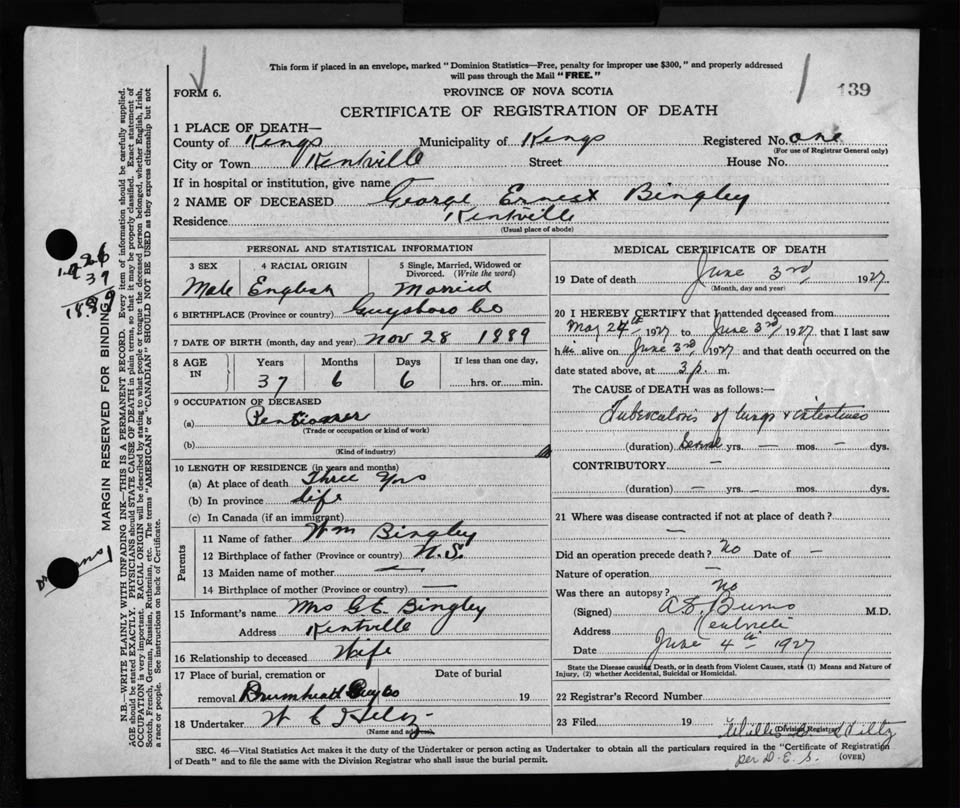 This form if placed in an envelope, marked "Dominion Statistics—Free, penalty for improper use $300," and properly addressed
will pass through the Mail "FREE."
FORM 6.
PROVINCE OF NOVA SCOTIA
139
CERTIFICATE OF REGISTRATION OF DEATH
1 PLACE OF DEATH—
County of Kings Municipality of Kings Registered No. one
(For use of Registrar General only)
City or Town Kentville Street House No.
If in hospital or institution, give name
2 NAME OF DECEASED George Ernest Bingley
Residence Kentville
(Usual place of abode)
PERSONAL AND STATISTICAL INFORMATION
3 SEX 4 RACIAL ORIGIN 5 Single, Married, Widowed or Divorced. (Write the word)
Male English Married
6 BIRTHPLACE (Province or country) Guysboro Co
7 DATE OF BIRTH (month, day and year) Nov 28 1889
8 AGE IN Years Months Days If less than one day,
37 6 6 hrs. or min.
9 OCCUPATION OF DECEASED
(a) Pensioner
(Trade or occupation or kind of work)
(b)
(Kind of industry)
10 LENGTH OF RESIDENCE (in years and months)
(a) At place of death Three Yrs
(b) In province Life
(c) In Canada (if an immigrant)
Parents
11 Name of father Wm Bingley
12 Birthplace of father (Province or country) N.S.
13 Maiden name of mother —
14 Birthplace of mother (Province or country) —
15 Informant's name Mrs G E Bingley
Address Kentville
16 Relationship to deceased Wife
17 Place of burial, cremation or Date of burial
removal 19
18 Undertaker W E
(Name and address)
MEDICAL CERTIFICATE OF DEATH
19 Date of death June 3rd 1927
(Month, day and year)
20 I HEREBY CERTIFY that I attended deceased from
May 24th 1927 to June 3rd 1927 that I last saw
him alive on June 3rd, 1927 and that death occurred on the
date stated above, at 3 p. m.
The CAUSE of DEATH was as follows:—
Tuberculosis of lungs & intestines
(duration) yrs. — mos. — dys.
CONTRIBUTORY —
(duration) — yrs. — mos. — dys.
21 Where was disease contracted if not at place of death?
—
Did an operation precede death? No Date of —
Nature of operation —
Was there an autopsy? No
(Signed) A.S. Burns M.D.
Address Kentville
Date June 4th 1927
State the Disease causing Death, or in death from Violent Causes, state (1) Means and Nature of
Injury, (2) whether Accidental, Suicidal or Homicidal.
22 Registrar's Record Number
23 Filed 19
(Division Registrar)
per D.E.S.
SEC. 46—Vital Statistics Act makes it the duty of the Undertaker or person acting as Undertaker to obtain all the particulars required in the "Certificate of Registration
of Death" and to file the same with the Division Registrar who shall issue the burial permit. (OVER)
MARGIN RESERVED FOR BINDING
1926
37
1889
N.B.—WRITE PLAINLY WITH UNFADING INK—THIS IS A PERMANENT RECORD. Every item of information should be carefully supplied.
AGE should be stated EXACTLY. PHYSICIANS should STATE CAUSE OF DEATH in plain terms, so that it may be properly classified. Exact statement of
OCCUPATION is very important. RACIAL ORIGIN will be described by stating to what people or tongue the deceased person belonged, whether English, Irish,
Scotch, French, German, Russian, Ruthenian, etc. The terms "AMERICAN" or "CANADIAN" SHOULD NOT BE USED as they express citizenship but not
a race or people. See instructions on back of Certificate.